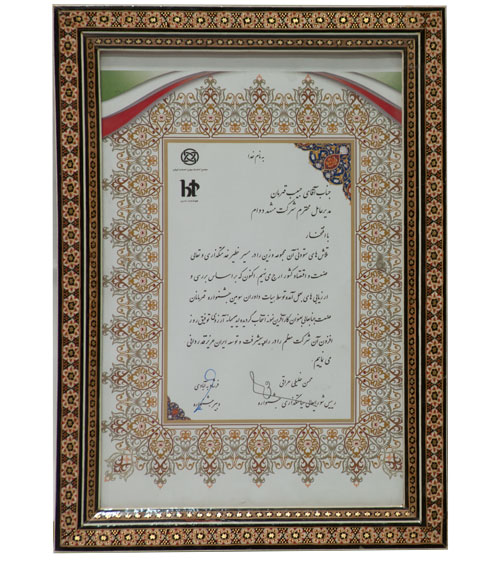 به نام خدا
جناب آقای حبیب قهرمان
مدیرعامل محترم شرکت مشهد دوام
با افتخار
تلاش های ستودنی آن مجموعه وزین را در مسیر خطیر خدمتگذاری و تعالی
صنعت و اقتصاد کشور ارج می نهیم. اکنون که بر اساس بررسی و
ارزیابی های بعمل آمده توسط هیات داوران سومین جشنواره قهرمانان
صنعت جنابعالی بعنوان کارآفرین نمونه انتخاب گردیده اید ضمن آرزوی توفیق روز
افزون آن شرکت معظم را در راه پیشرفت و توسعه ایران عزیز قدردانی
می نماییم.
رییس شورای سیاستگذاری جشنواره
دبیر جشنواره